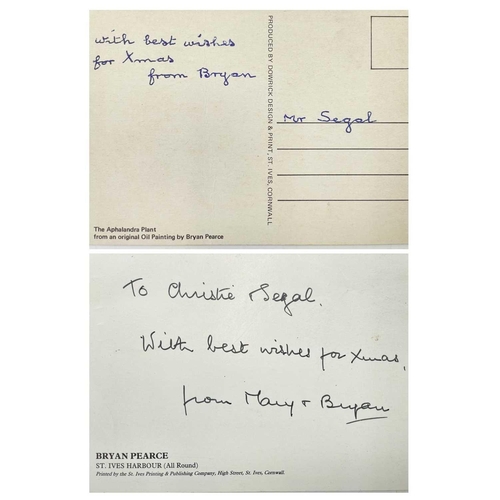 with best wishes
for Xmas
from Bryan
PRODUCED BY DOWRICK DESIGN & PRINT, ST. IVES, CORNWALL
Mr Segal
The Aphalandra Plant
from an original Oil Painting by Bryan Pearce
To Christie Segal.
With best wishes for Xmas,
from Mary + Bryan
BRYAN PEARCE
ST. IVES HARBOUR (All Round)
Printed by the St. Ives Printing & Publishing Company, High Street, St. Ives, Cornwall.